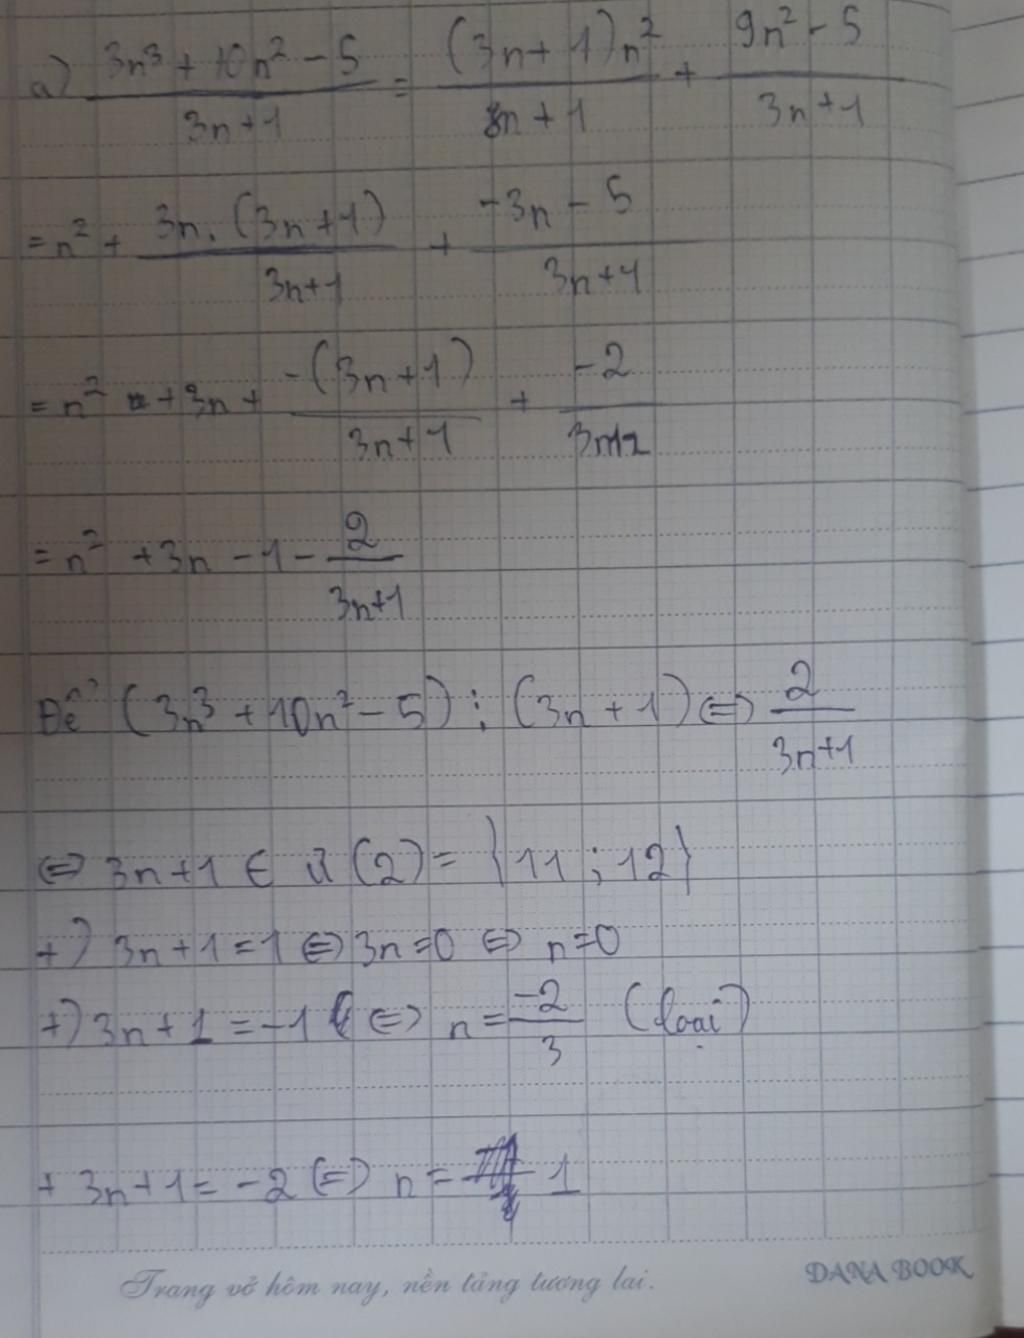 a) (3n³ + 10n² - 5)/(3n+1) = ((3n+1)n²)/(3n+1) + (9n² - 5)/(3n+1)
= n² + (3n.(3n+1))/(3n+1) + (-3n - 5)/(3n+1)
= n² + 3n + (-(3n+1))/(3n+1) + (-2)/(3n+2
= n² + 3n - 1 - 2/(3n+1)
Để (3n³ + 10n² - 5) ⋮ (3n+1) ⇔ 2/(3n+1)
⇔ 3n+1 ∈ Ư(2) = {11 ; 12}
+) 3n+1 = 1 ⇔ 3n = 0 ⇔ n = 0
+) 3n+1 = -1 ⇔ n = -2/3 (loại)
+ 3n+1 = -2 (=) n = - 1
Trang vở hôm nay, nền tảng tương lai.
DANA BOOK